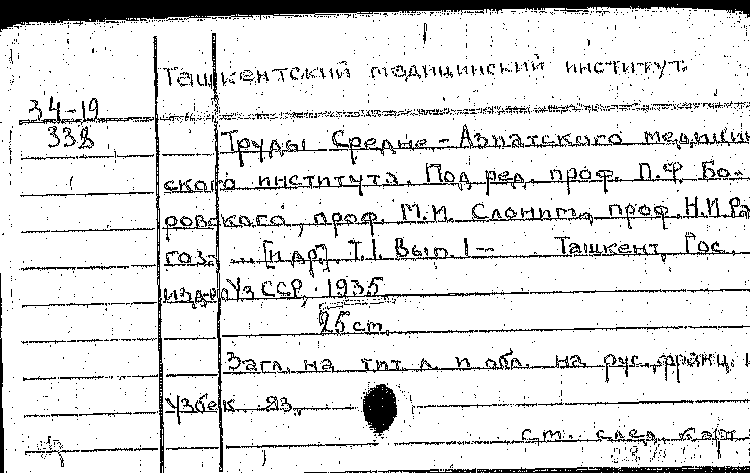 Ташкентский медицинский институт.
34-19
338
Труды Средне-Азиатского медицин
ского института. Под ред. проф. П.Ф. Бо-
ровского, проф. М.И. Слонима, проф. Н.И. Ра
гоза ... [и др.] Т.I. Вып. I - Ташкент, Гос.
изд-во УзССР, 1935
25 см.
Загл. на тит. л. и обл. на рус., франц. и
узбек. яз.
см. след. карт